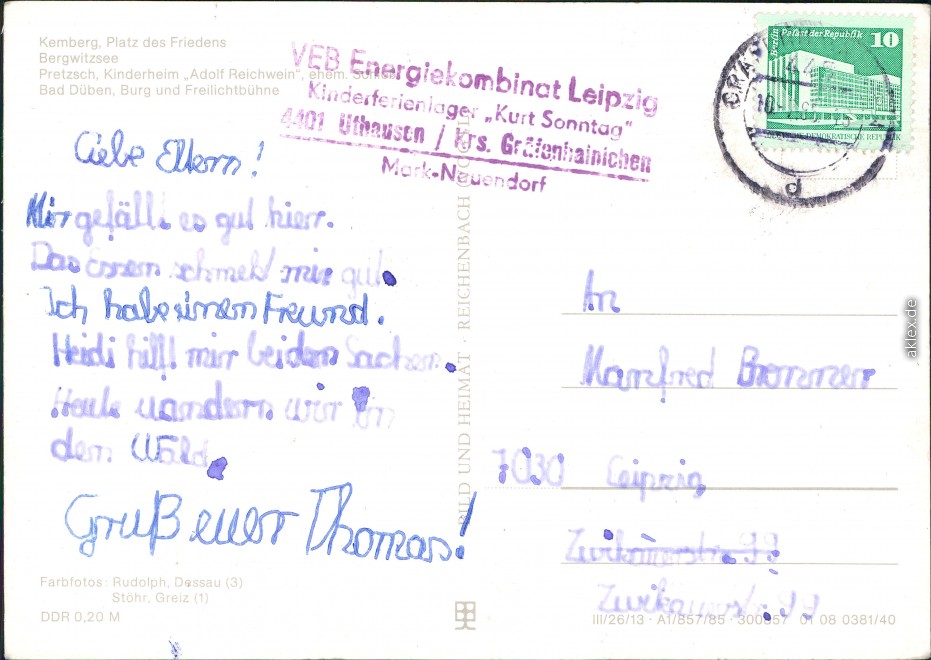 Kemberg, Platz des Friedens
Bergwitzsee
Pretzsch, Kinderheim „Adolf Reichwein", ehem.
Bad Düben, Burg und Freilichtbühne
VEB Energiekombinat Leipzig
Kinderferienlager „Kurt Sonntag"
4401 Uthausen / Krs. Gräfenhainichen
Mark-Neuendorf
Berlin Palast der Republik 10
DEMOKRATISCHE REPUBLIK
d
Liebe Eltern!
Mir gefällt es gut hier.
Das essen schmekt mir gut.
Ich habe einem Freund.
Heidi hilft mir bei den Sachen.
Heute wandern wir in
den Wald.
Gruß euer Thomas!
BILD UND HEIMAT · REICHENBACH
An
Manfred Brommer
7030 Leipzig
Zwikauerstr. 99
Zwikauerstr. 99
Farbfotos: Rudolph, Dessau (3)
Stöhr, Greiz (1)
DDR 0,20 M
III/26/13 · A1/857/85 · 300357 01 08 0381/40
aklex.de